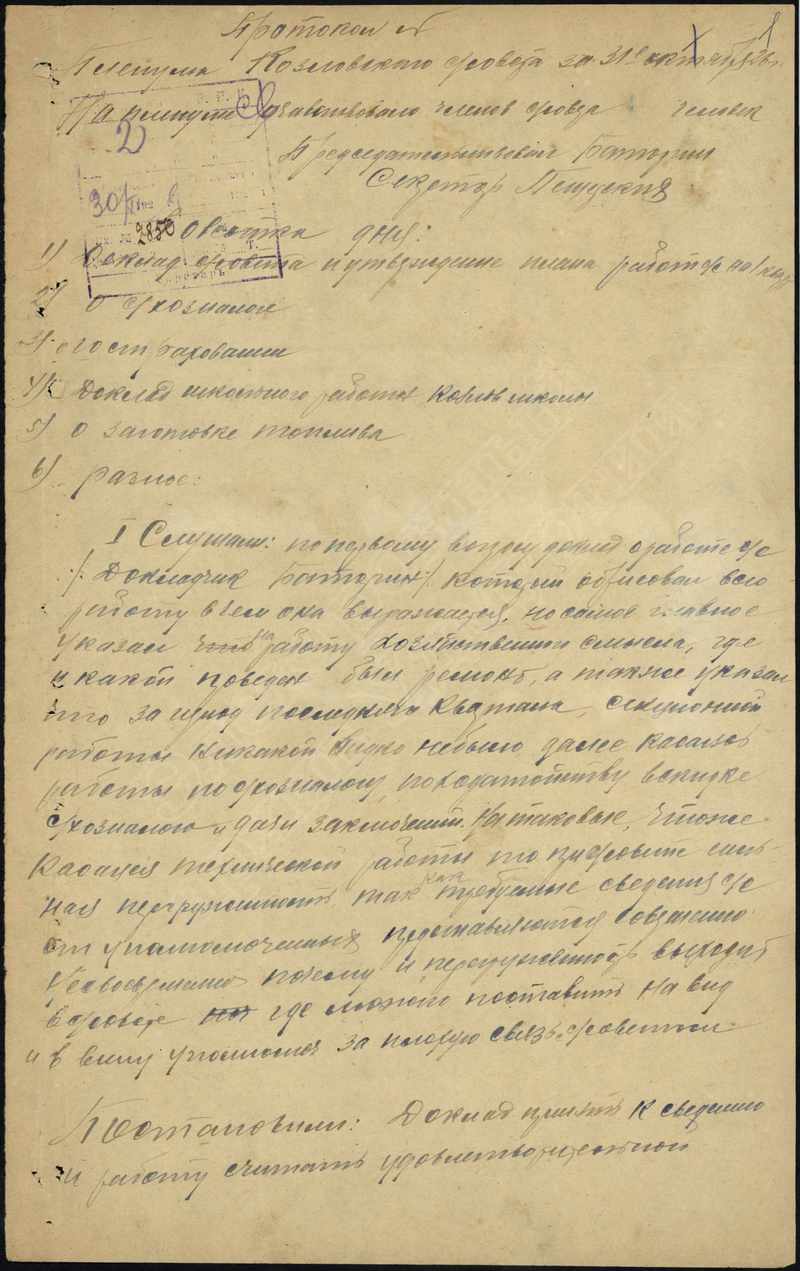 Протокол №
Пленума Козловского с/совета за 31е октября 26г.
На пленуме участвовало членов с/совета человек
Председательствовал Батюрин
Секретарь
2)
30/
2850
Повестка дня:
1) Доклад с/совета и утверждение плана работ с/с на 1 кварт
2) о с/хозналоге
3) о госстраховании
4) Доклад школьного работн Козлов школы
5) о заготовке топлива
6) разное:
I Слушали: по первому вопросу доклад о работе с/с
/. Докладчик Батюрин/. который обрисовал всю
работу в чем она выражается, но самое главное
указал на работу хозяйственного смысла, где
и какой поведен был ремонт, а также указал
что за период последнего квартала, секционной
работы никакой видно небыло далее касаясь
работы по с/хозналогу, по ходатайству в скидке
с/хозналога и дачи заключений на таковые, что же
касаися технической работы то в с/совете силь-
ная перегруженность так как требуемые сведения с/с
от уполномоченных предоставляются совершенно
несвоевременно почему и перегруженность выходит
в с/совете где можно поставить на вид
и в вину уполномоч за плохую связь с с/советом
Постановили: Доклад принять к сведению
и работу считать удовлетворительной